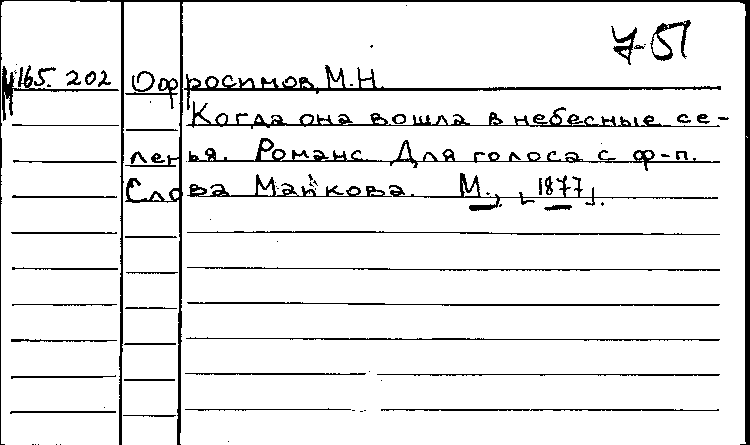 7-51
М165.202 Офросимов, М.Н.
Когда она вошла в небесные се-
ленья. Романс. Для голоса с ф-п.
Слова Майкова. М., [1877].